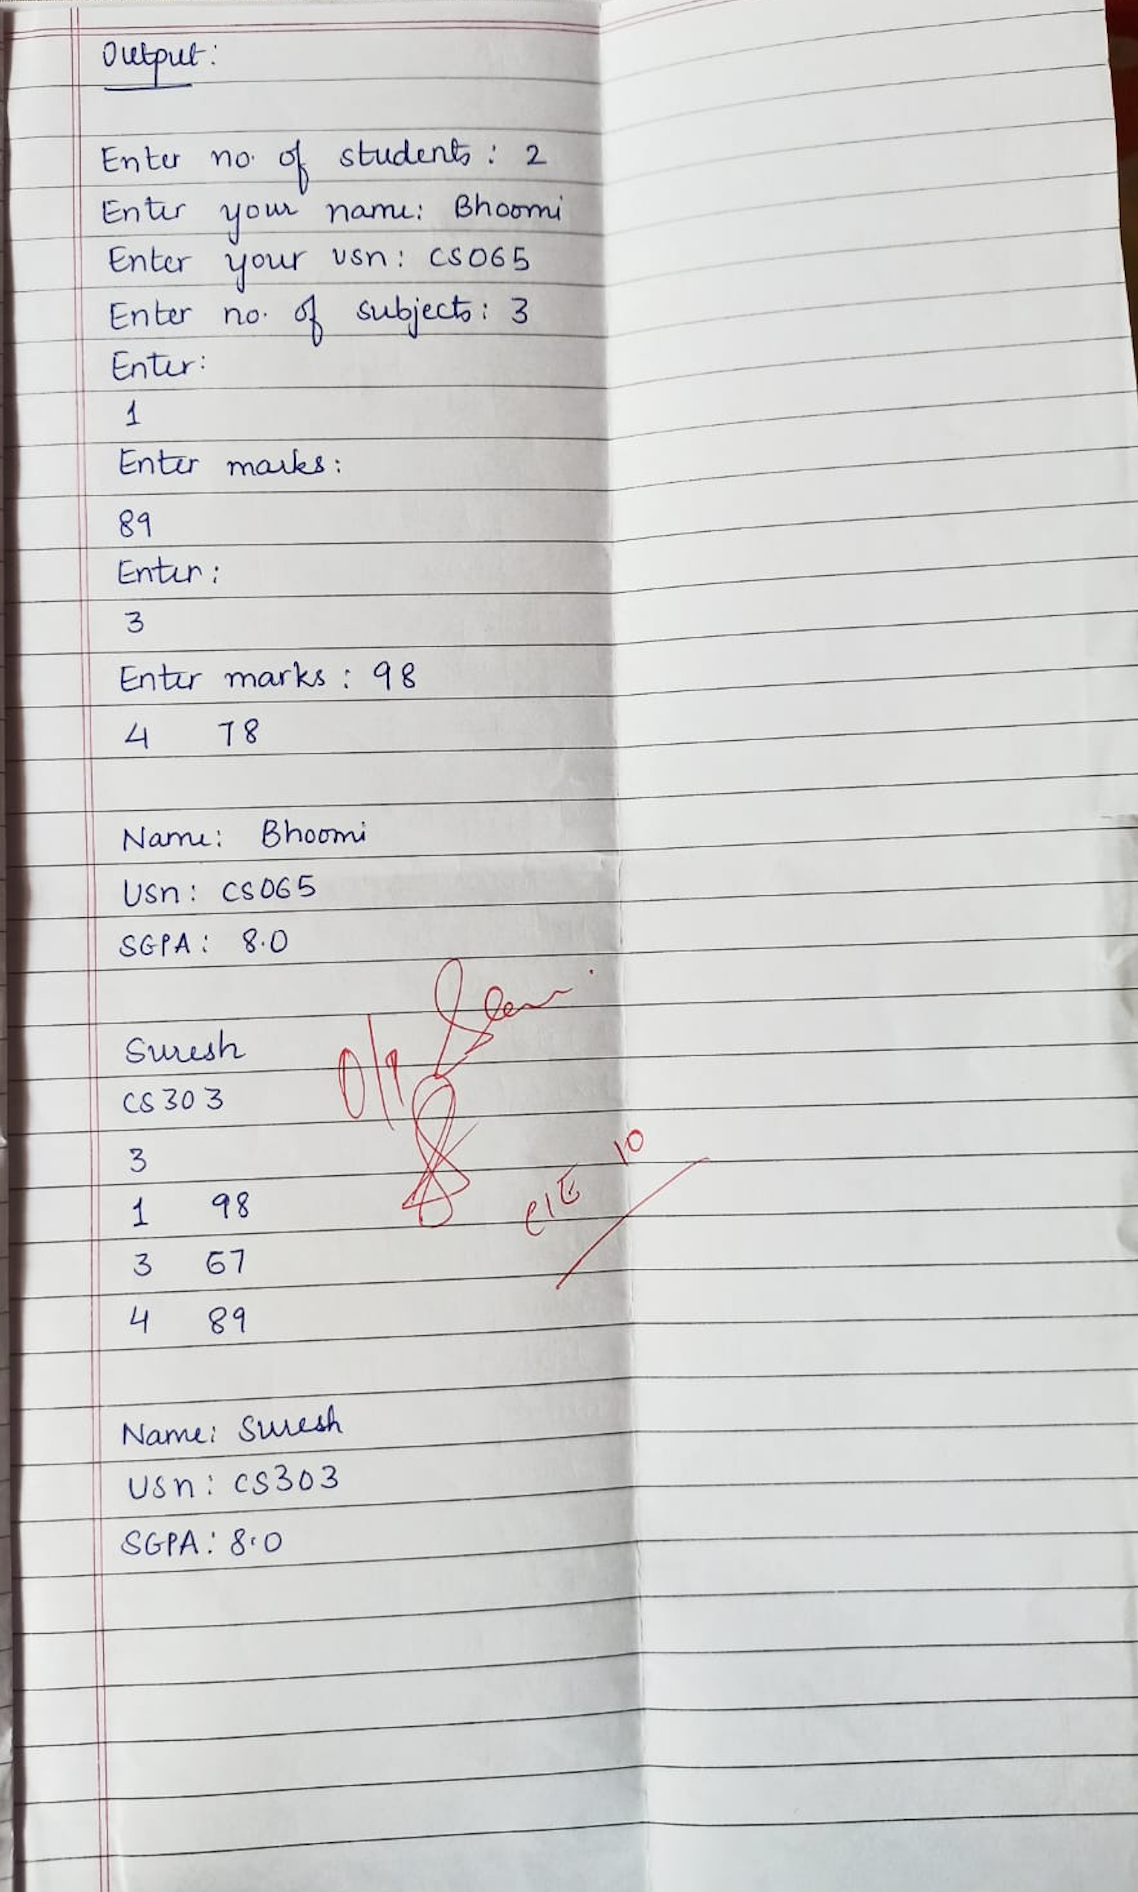 Output:
Enter no. of students : 2
Enter your name: Bhoomi
Enter your usn: CS065
Enter no. of subjects: 3
Enter:
1
Enter marks:
89
Enter:
3
Enter marks : 98
4 78
Name: Bhoomi
Usn: CS065
SGPA: 8.0
O/P Seen
Suresh
CS303
3
CIE 10
1 98
3 67
4 89
Name: Suresh
Usn: CS303
SGPA: 8.0